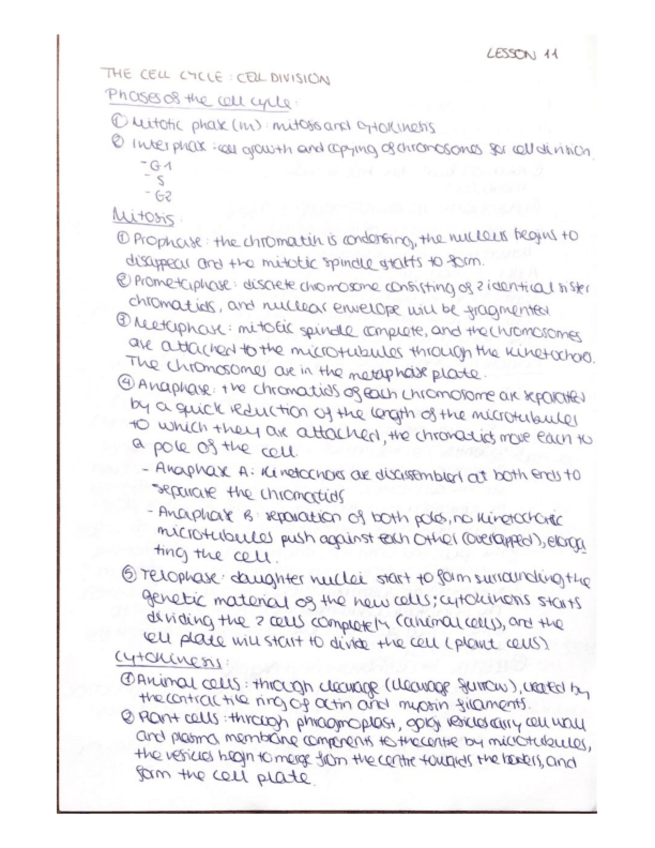 LESSON 11
THE CELL CYCLE: CELL DIVISION
Phases of the cell cycle:
① Mitotic phase (M): mitosis and cytokinesis
② Interphase: cell growth and copying of chromosomes for cell division.
- G1
- S
- G2
Mitosis:
① Prophase: the chromatin is condensing, the nucleus begins to
disappear and the mitotic spindle starts to form.
② Prometaphase: discrete chromosome consisting of 2 identical sister
chromatids, and nuclear envelope will be fragmented
③ Metaphase: mitotic spindle complete, and the chromosomes
are attached to the microtubules through the kinetochore.
The chromosomes are in the metaphase plate.
④ Anaphase: the chromatids of each chromosome are separated
by a quick reduction of the length of the microtubules
to which they are attached, the chromatids move each to
a pole of the cell.
- Anaphase A: kinetochors are disassembled at both ends to
separate the chromatids
- Anaphase B: separation of both poles, no kinetochoric
microtubules push against each other (overlapped), elonga
ting the cell.
⑤ Telophase: daughter nuclei start to form surrounding the
genetic material of the new cells; cytokinesis starts
dividing the 2 cells completely (animal cells), and the
cell plate will start to divide the cell (plant cells)
Cytokinesis:
① Animal cells: through cleavage (cleavage furrow), created by
the contractile ring of actin and myosin filaments.
② Plant cells: through phragmoplast, golgi vesicles carry cell wall
and plasma membrane components to the centre by microtubules,
the vesicles begin to merge from the centre towards the borders, and
form the cell plate.